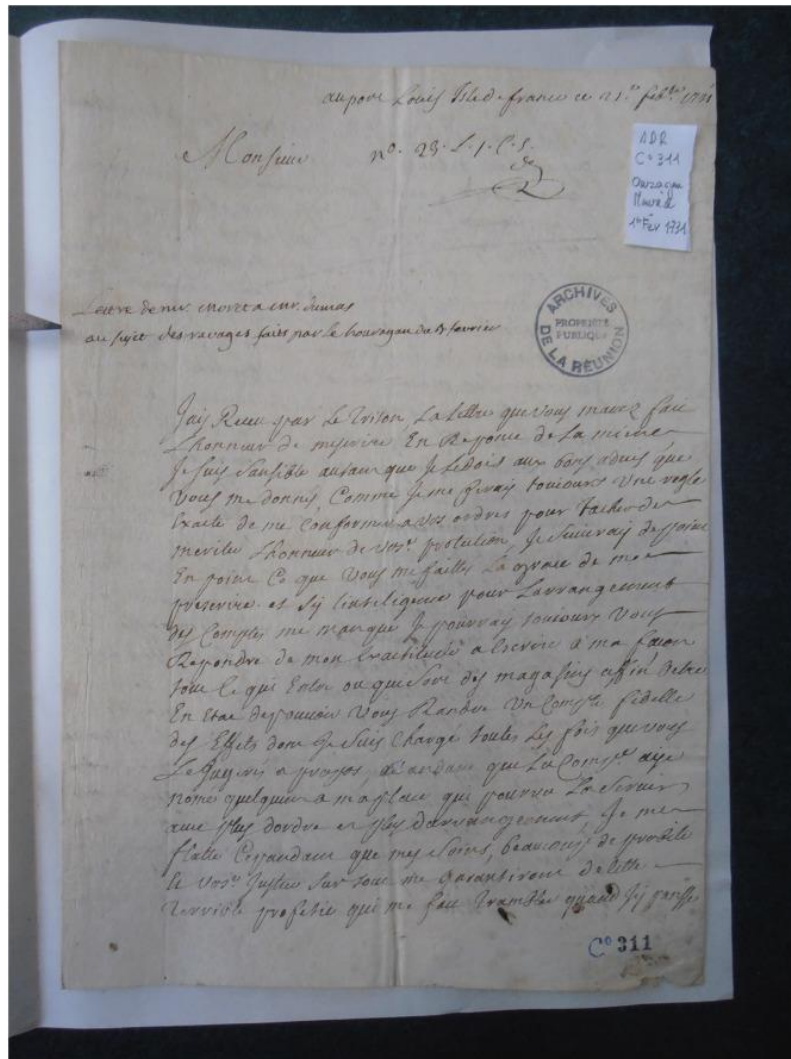 au port Louis Isle de france ce 21.e feb.er 1731
Monsieur
n.o 23. L. 1. C. S.
ADR
C° 311
Ouragan
1er Fev 1731
Lettre de mr. moret a mr. dumas
au sujet des ravages faits par le houragan du février
ARCHIVES
PROPRIÉTÉ
PUBLIQUE
DE LA RÉUNION
Jais Receu par Le Triton, La lettre que vous mavez fait
Lhonneur de mescrire En Reponce de La mienne
Je suis Sansible autant que Je Ledois aux bons aduis que
Vous me donnes, Comme Je me ferais toujours Une regle
Exacte de me Conformer a vos ordres pour Tacher de
meriter Lhonneur de vos.e protection Je Suiuray de point
En point Ce que Vous me faittes La grace de me
prescrire et Sy Lintelligence pour Larrangement
des Comptes me manque Je pourray toujours Vous
Repondre de mon Exactitude a Escrire a ma facon
tout Ce qui Entre ou que Sort des magasins affin detre
En Etat de pouuoir Vous Randre Un Compte fidelle
des Effets dont Je Suis Chargé toutes Les fois que vous
Le Jugerés a propos, attandant que La Comp.e aye
nomé quelquun a ma place qui pourra La Seruir
auec plus dordre et plus darrangement, Je me
flatte Cepandant que mes Soins, beaucoup de
Et vos.e Justice Sur tout me garantiront de
terrible profetie qui me fait trambler quand Jy pansse
C° 311